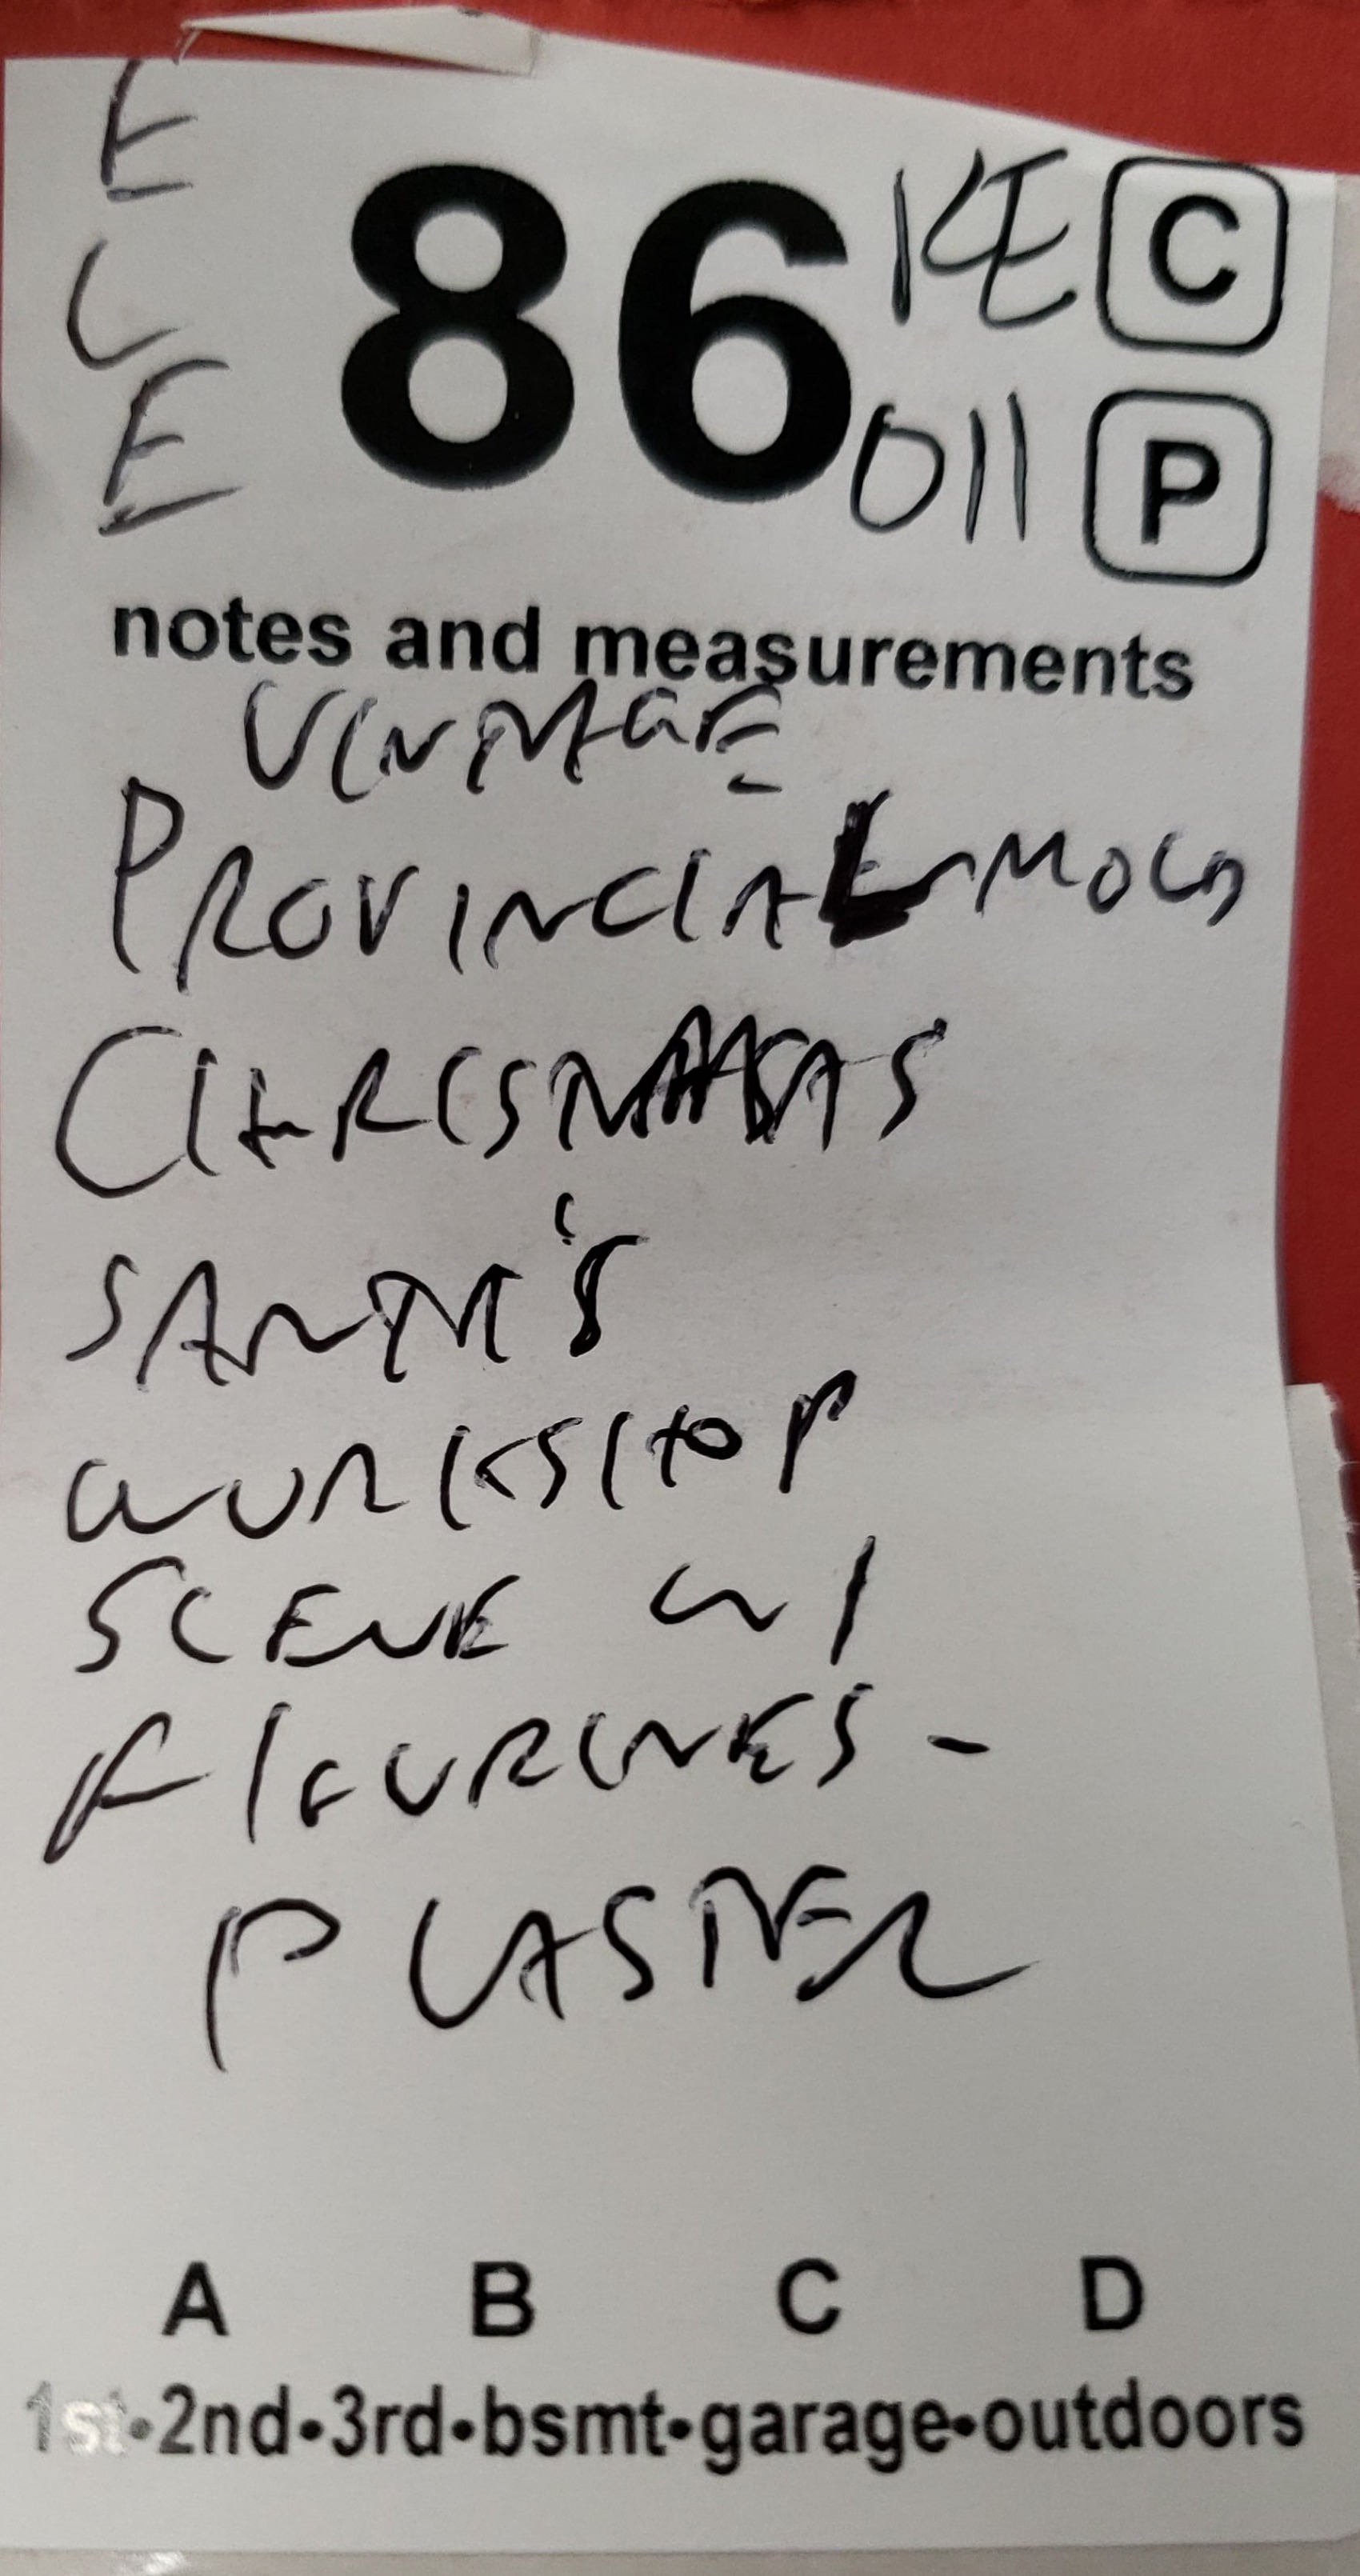 E
L
E
86
KE
C
011
P
notes and measurements
VINTAGE
PROVINCIAL MOLD
CHRISTMAS
SANTA'S
WORKSHOP
SCENE W/
FIGURINES -
PLASTER
A B C D
1st•2nd•3rd•bsmt•garage•outdoors